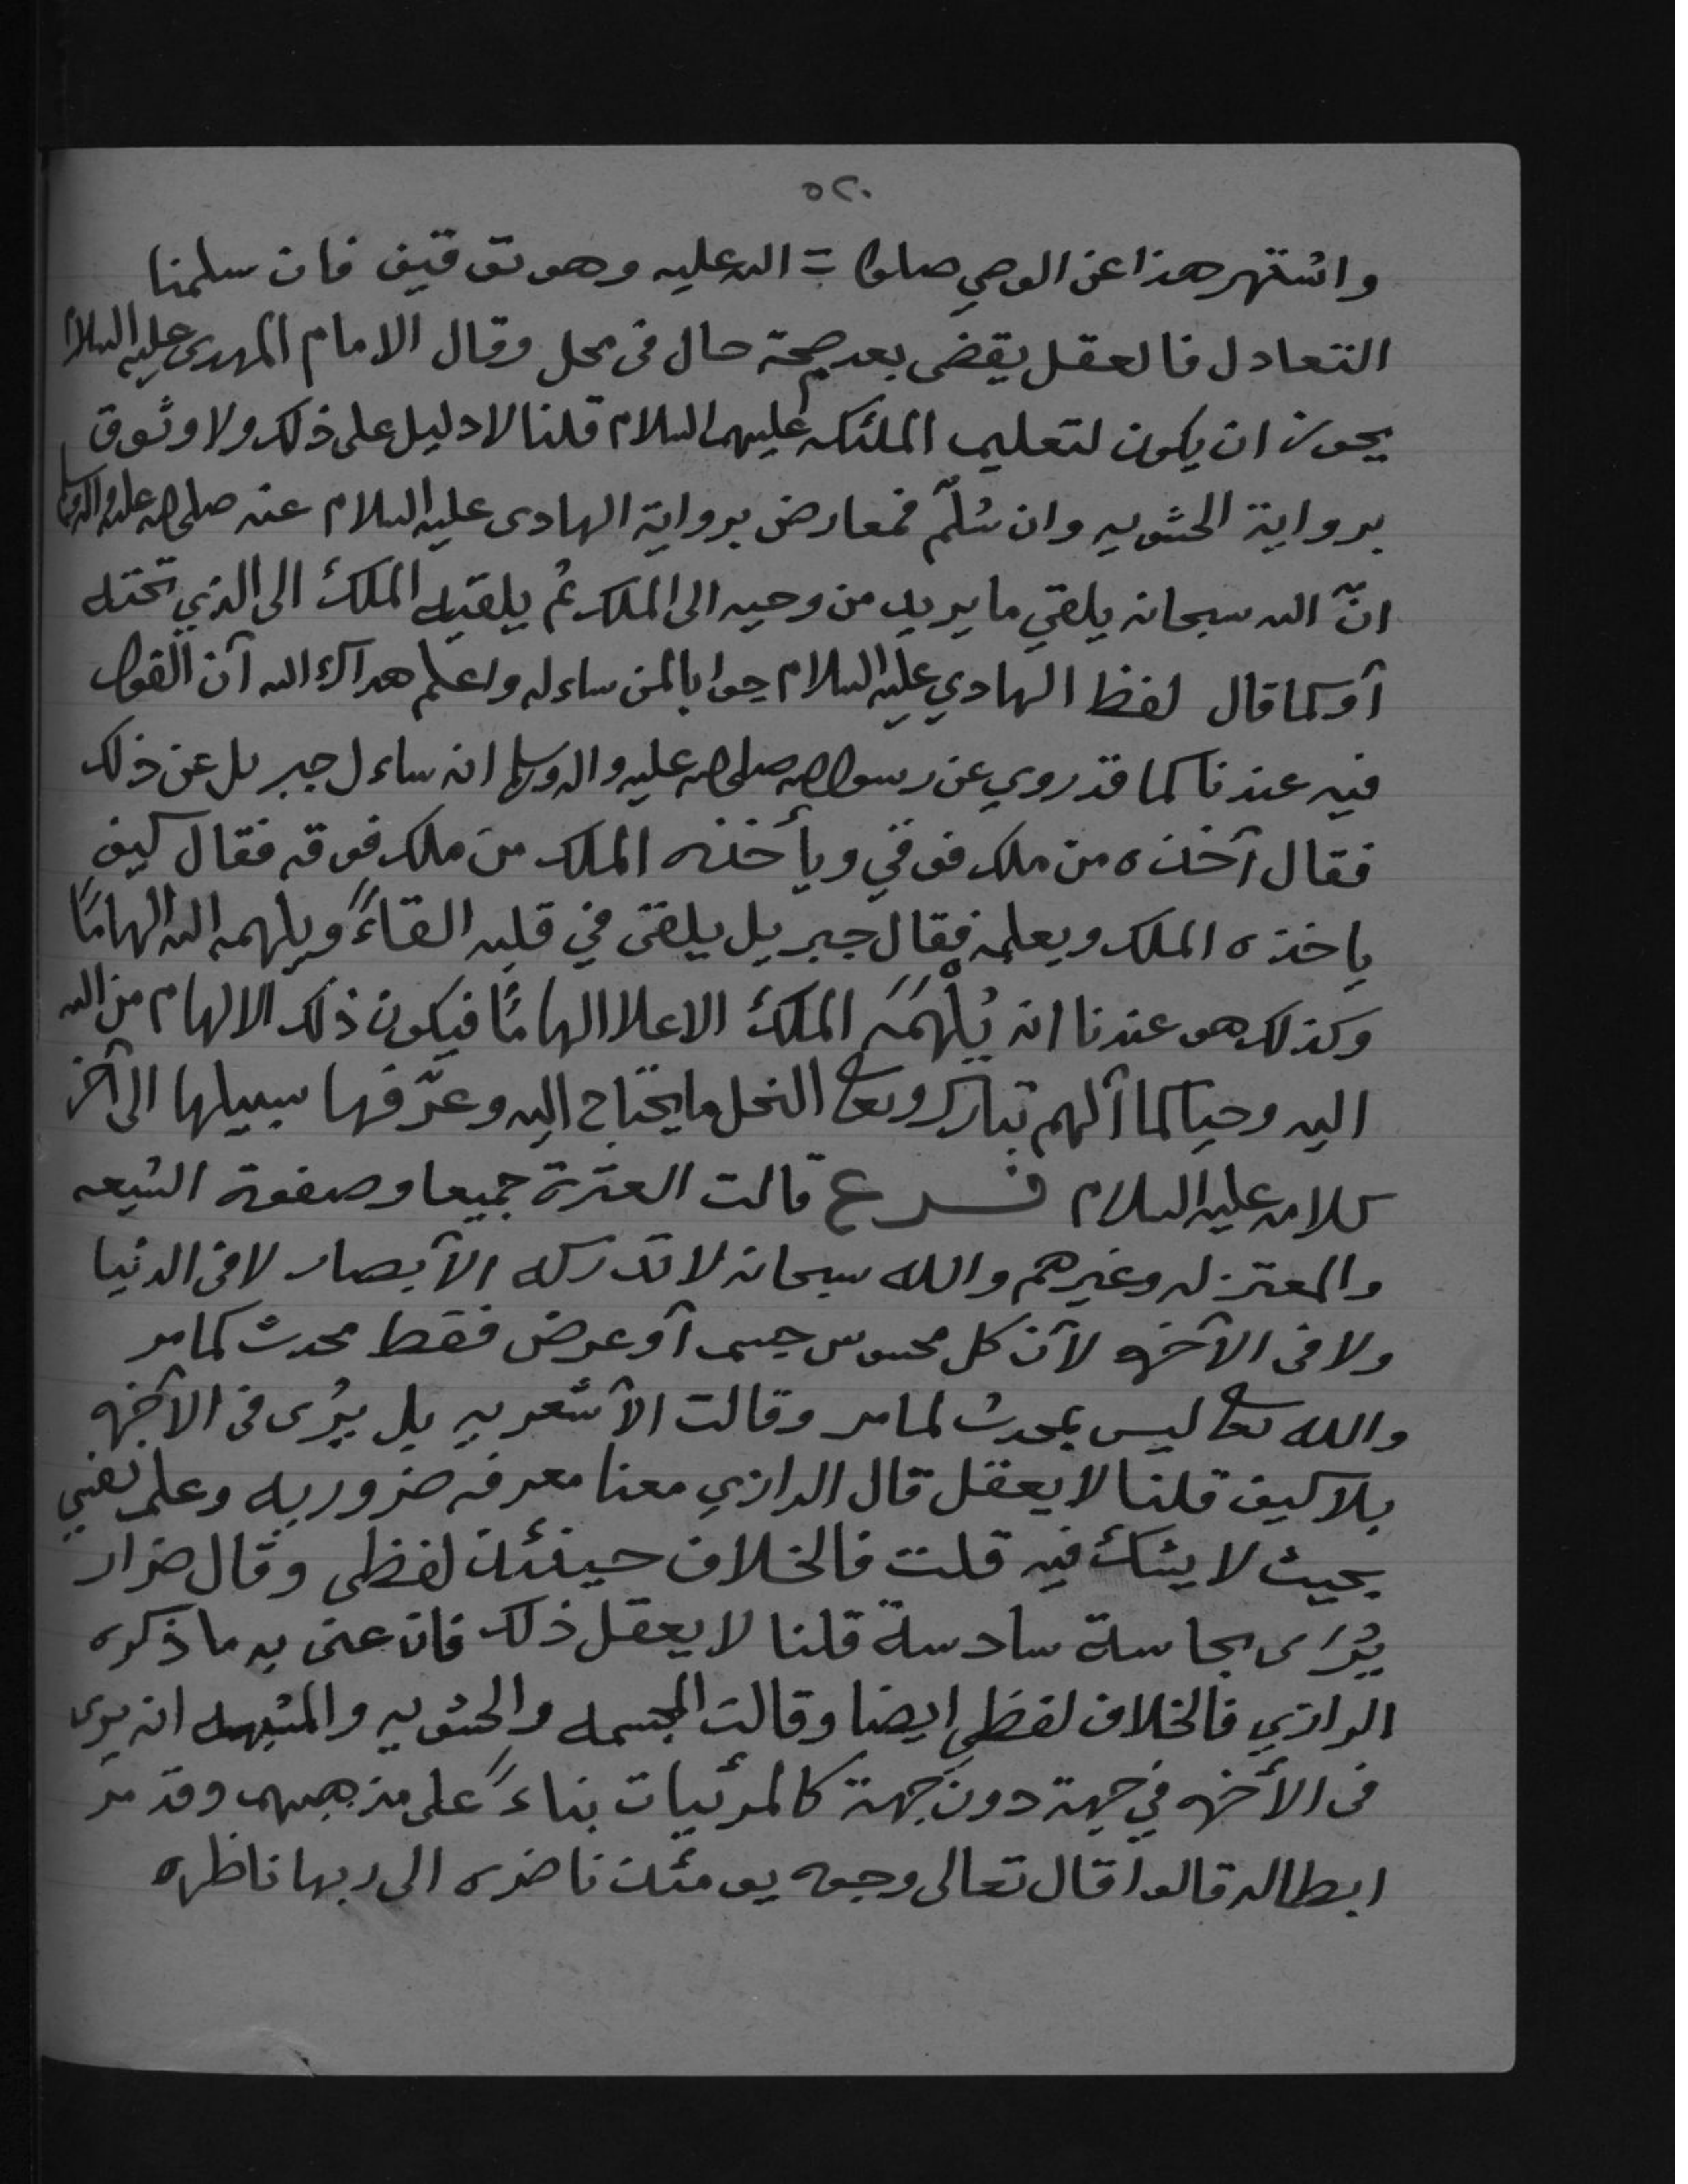 ٥٢٠
واشتهر هذا عن الوصي صلوات الله عليه وهو توقيف فان سلمنا
التعادل فالعقل يقضى بعدم صحة حال فى محل وقال الامام المهدى عليه السلام
يجوز ان يكون لتعليم الملئكه عليهم السلام قلنا لا دليل على ذلك ولا وثوق
برواية الحشويه وان سُلّم فمعارض برواية الهادى عليه السلام عنه صلى الله عليه واله وسلم
انّ الله سبحانه يلقي ما يريد من وحيه الى الملك ثم يلقيه الملكُ الى الذي تحته
أو كما قال لفظ الهادي عليه السلام جوابا لمن ساءله واعلم هداك الله أن القول
فيه عندنا كما قد روي عن رسول الله صلى الله عليه واله وسلم انه ساءل جبريل عن ذلك
فقال آخذه من ملك فوقي ويأخذه الملك من ملك فوقه فقال كيف
ياخذه الملك ويعلمه فقال جبريل يلقى في قلبه القاءً ويلهمه الله الهامًا
وكذلك هو عندنا انه يُلْهَمَه الملكُ الاعلا الهامًا فيكون ذلك الالهام من الله
اليه وحيا كما ألهم تبارك وتعالى النحل ما يحتاج اليه وعرّفها سبيلها الى آخر
كلامه عليه السلام فـرع قالت العترة جميعا وصفوة الشيعه
والمعتزله وغيرهم والله سبحانه لا تدركه الأبصار لا فى الدنيا
ولا فى الآخره لأن كل محسوس جسم أو عرض فقط محدث كما مر
والله تعالى ليس بمحدث لما مر وقالت الأشعريه بل يُرى فى الآخره
بلا كيف قلنا لا يعقل قال الرازي معنا معرفه ضروريه وعلم نفسي
بحيث لا يشك فيه قلت فالخلاف حينئذ لفظى وقال ضرار
يُرَى بحاسة سادسة قلنا لا يعقل ذلك فان عنى به ما ذكره
الرازي فالخلاف لفظي ايضا وقالت المجسمه والحشويه والمشبهه انه يرى
فى الأخره في جهة دون جهة كالمرئيات بناءً على مذهبهم وقد مر
ابطاله قالوا قال تعالى وجوه يومئذ ناضره الى ربها ناظره